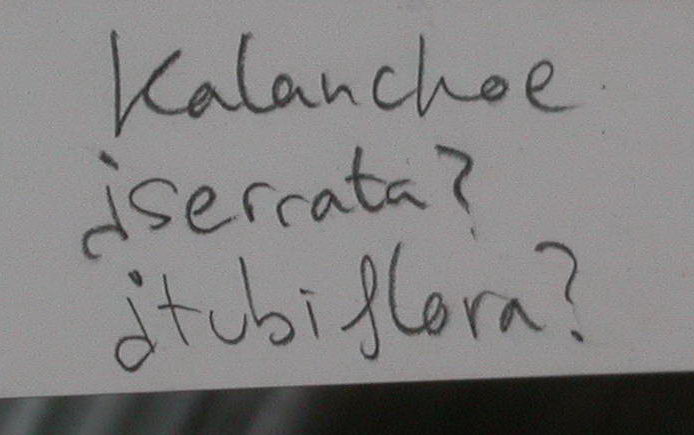 Kalanchoe
¿serrata?
¿tubiflora?